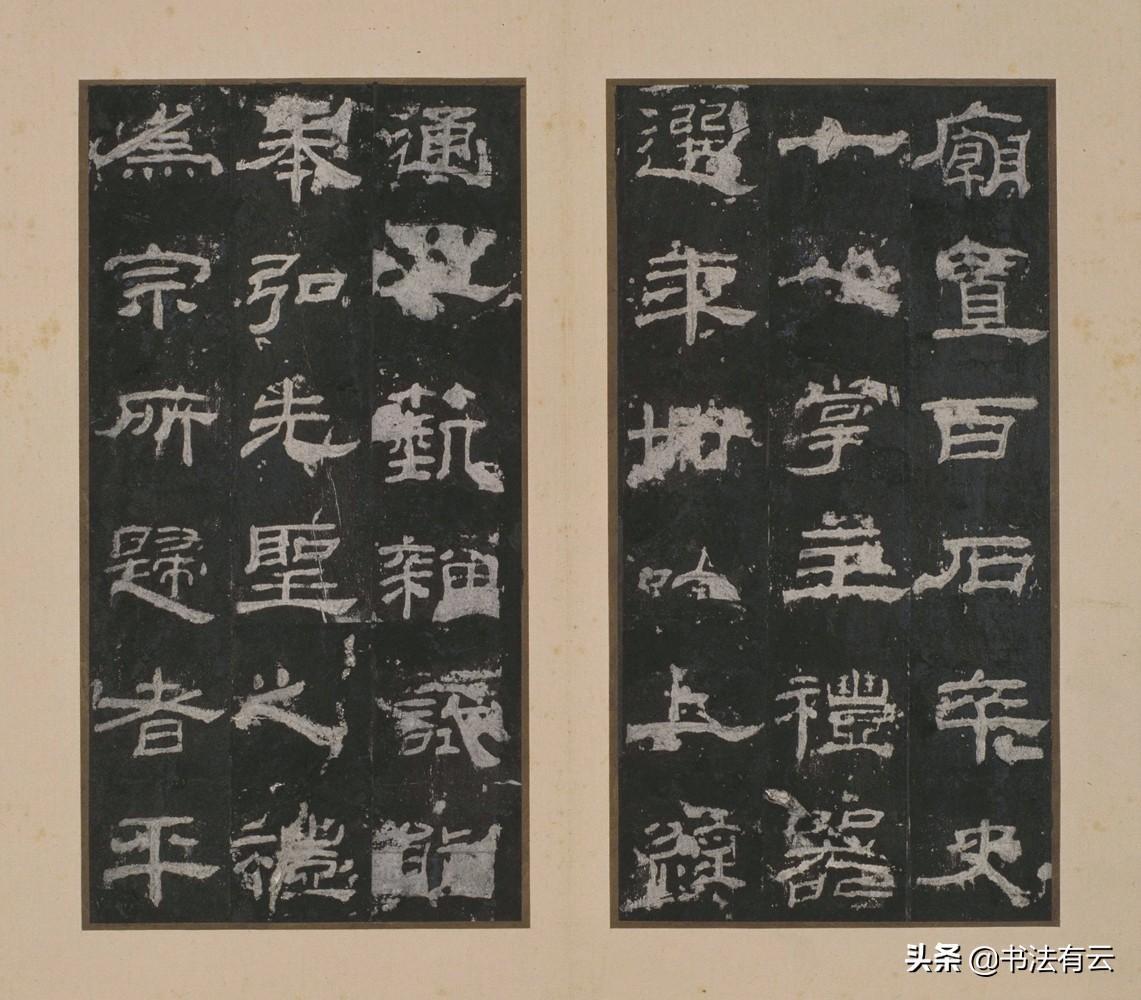 廟置百石卒史
一人掌主禮器
選年卌以上經
通一藝雜試能
奉弘先聖之禮
為宗所歸者平
头条 @书法有云